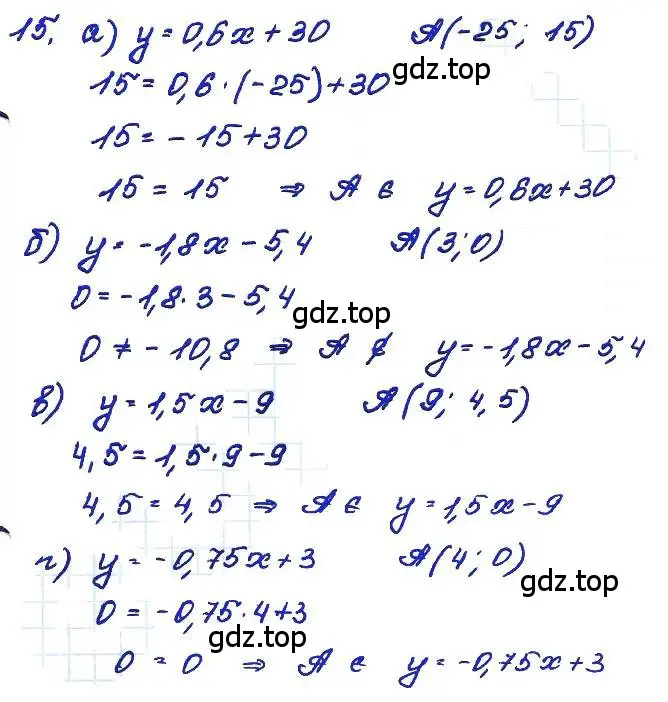 15. а) y = 0,6x + 30 A(-25; 15)
15 = 0,6 · (-25) + 30
gdz.top
15 = -15 + 30
15 = 15 ⇒ A ∈ y = 0,6x + 30
б) y = -1,8x - 5,4 A(3; 0)
0 = -1,8 · 3 - 5,4
gdz.top
0 ≠ -10,8 ⇒ A ∉ y = -1,8x - 5,4
в) y = 1,5x - 9 A(9; 4,5)
4,5 = 1,5 · 9 - 9
gdz.top
4,5 = 4,5 ⇒ A ∈ y = 1,5x - 9
г) y = -0,75x + 3 A(4; 0)
gdz.top
0 = -0,75 · 4 + 3
gdz.top
0 = 0 ⇒ A ∈ y = -0,75x + 3